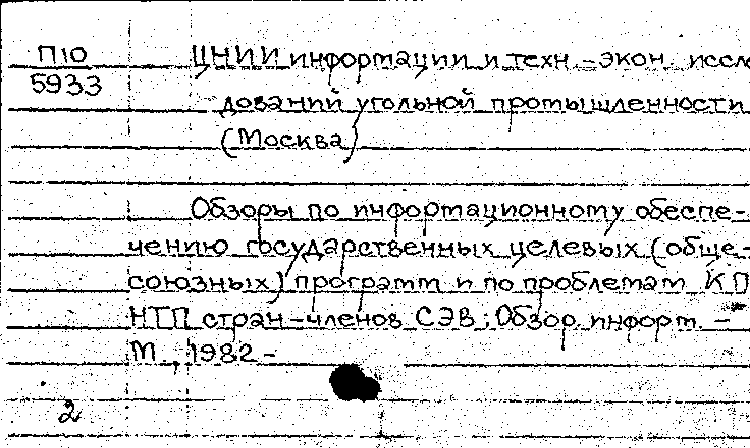 П10
5933
ЦНИИ информации и техн.-экон. иссл
дований угольной промышленности
(Москва)
Обзоры по информационному обеспе-
чению государственных целевых (обще-
союзных) программ и по проблемам КП
НТП стран-членов СЭВ; Обзор. информ. -
М., 1982 -
2